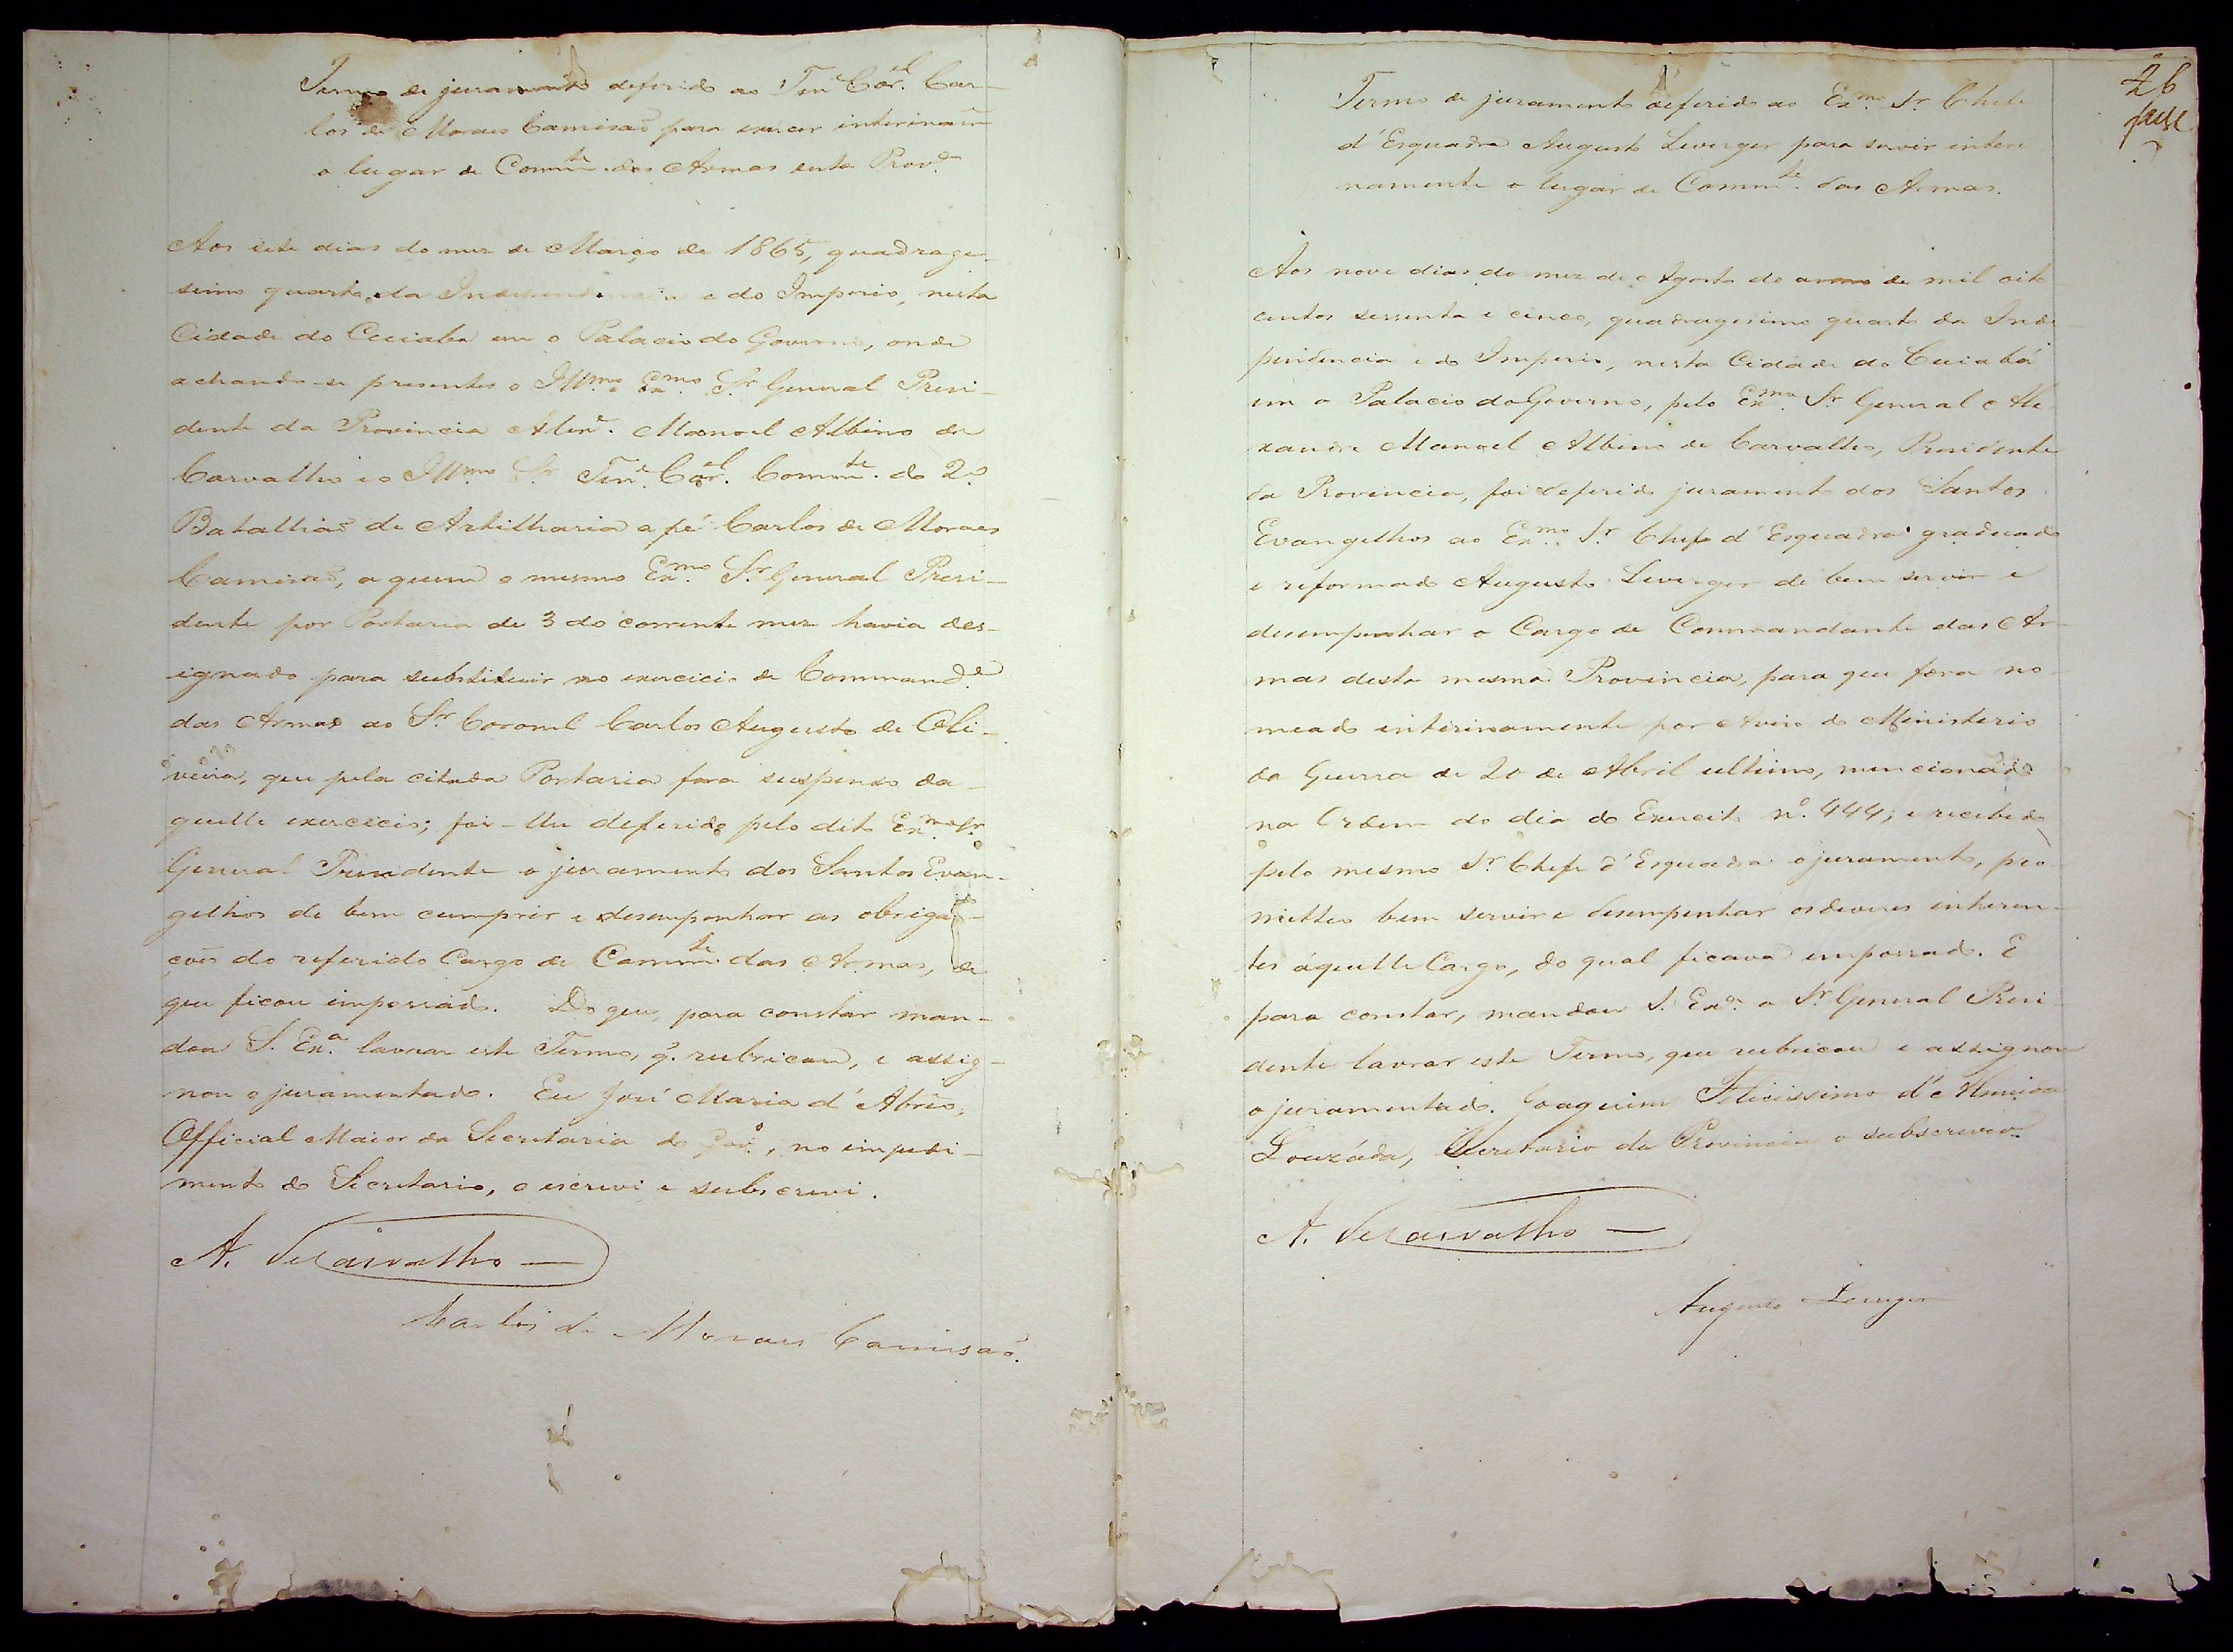 Termo de juramento deferido ao Tene Corel Car-
los de Moraes Camisaõ para exercer interinamte
o lugar de Commte das Armas esta Prova
Aos sete dias do mez de Março de 1865, quadrage-
simo quarto da Independencia e do Imperio, nesta
Cidade do Cuiaba em o Palacio do Governo, onde
achando-se presentes o Illmo e Exmo Sr General Presi-
dente da Provincia Alexe. Manoel Albino de
Carvalho e o Illmo Sr Tene Corel Commte do 2o
Batalhaõ de Artilharia a pé Carlos de Moraes
Camisaõ, a quem o mesmo Exmo Sr General Presi-
dente por Portaria de 3 do corrente mez havia des-
ignado para substituir no exercicio de Commande
das Armas ao Sr Coronel Carlos Augusto de Oli-
veira, que pela citada Portaria fora suspenso da-
quelle exercicio; foi-lhe deferido pelo dito Exmo Sr
General Presidente o juramento dos Santos Evan-
gelhos de bem cumprir e desempenhar as obriga-
çoẽs do referido Cargo de Commte das Armas, de
que ficou impossado. Do que, para constar man-
dou S. Exa lavrar este Termo, q. rubricou, e assig-
nou o juramentado. Eu José Maria d'Abreo,
Official Maior da Secretaria do Govo, no impedi-
mento do Secretario, o escrevi e subscrevi.
A. de Carvalho
Carlos de Moraes Camisaõ.
26
Termo de juramento deferido ao Exmo Sr Chefe
d'Esquadra Augusto Leverger para servir interi
namente o lugar de Commte das Armas.
Aos nove dias do mez de Agosto do anno de mil oito
centos sessenta e cinco, quadragesimo quarto da Inde
pendencia e do Imperio, nesta Cidade do Cuiabá
em o Palacio do Governo, pelo Exmo Sr General Ale
xandre Manoel Albino de Carvalho, Presidente
da Provincia, foi deferido juramento dos Santos
Evangelhos ao Exmo Sr Chefe d'Esquadra graduado
e reformado Augusto Leverger de bem servir e
desempenhar o Cargo de Commandante das Ar-
mas desta mesma Provincia, para que fora no-
meado interinamente por Aviso do Ministerio
da Guerra de 20 de Abril ultimo, mencionado
na Ordem do dia do Exercito no 444; e recebido
pelo mesmo Sr Chefe d'Esquadra o juramento, pro
metteo bem servir e desempenhar os deveres inheren-
tes áquelle Cargo, do qual ficava empossado. E
para constar, mandou S. Exa o Sr General Presi
dente lavrar este Termo, que rubricou e assignou
o juramentado. Joaquim Felicissimo d'Almeida
Louzáda, Secretario da Provincia o subscrevo.
A. de Carvalho
Augusto Leverger